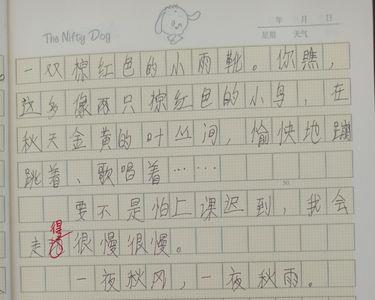 The Nifty Dog
年 月 日
星期 天气
一双棕红色的小雨靴。你瞧，
这多像两只棕红色的小鸟，在
秋天金黄的叶丛间，愉快地蹦
跳着、歌唱着……
要不是怕上课迟到，我会
走得很慢很慢。
一夜秋风，一夜秋雨。